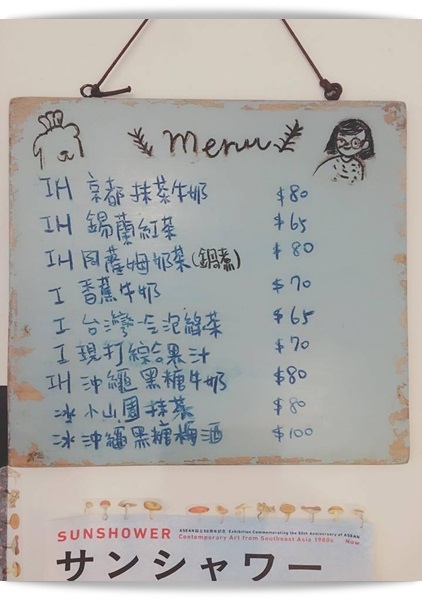 Menu
IH 京都抹茶牛奶 $80
IH 錫蘭紅茶 $65
IH 阿薩姆奶茶(鍋煮) $80
I 香蕉牛奶 $70
I 台灣冷泡綠茶 $65
I 現打綜合果汁 $70
IH 沖繩黑糖牛奶 $80
冰 小山園抹茶 $80
冰 沖繩黑糖梅酒 $100
SUNSHOWER
Contemporary Art from Southeast Asia 1980s
Now
サンシャワー